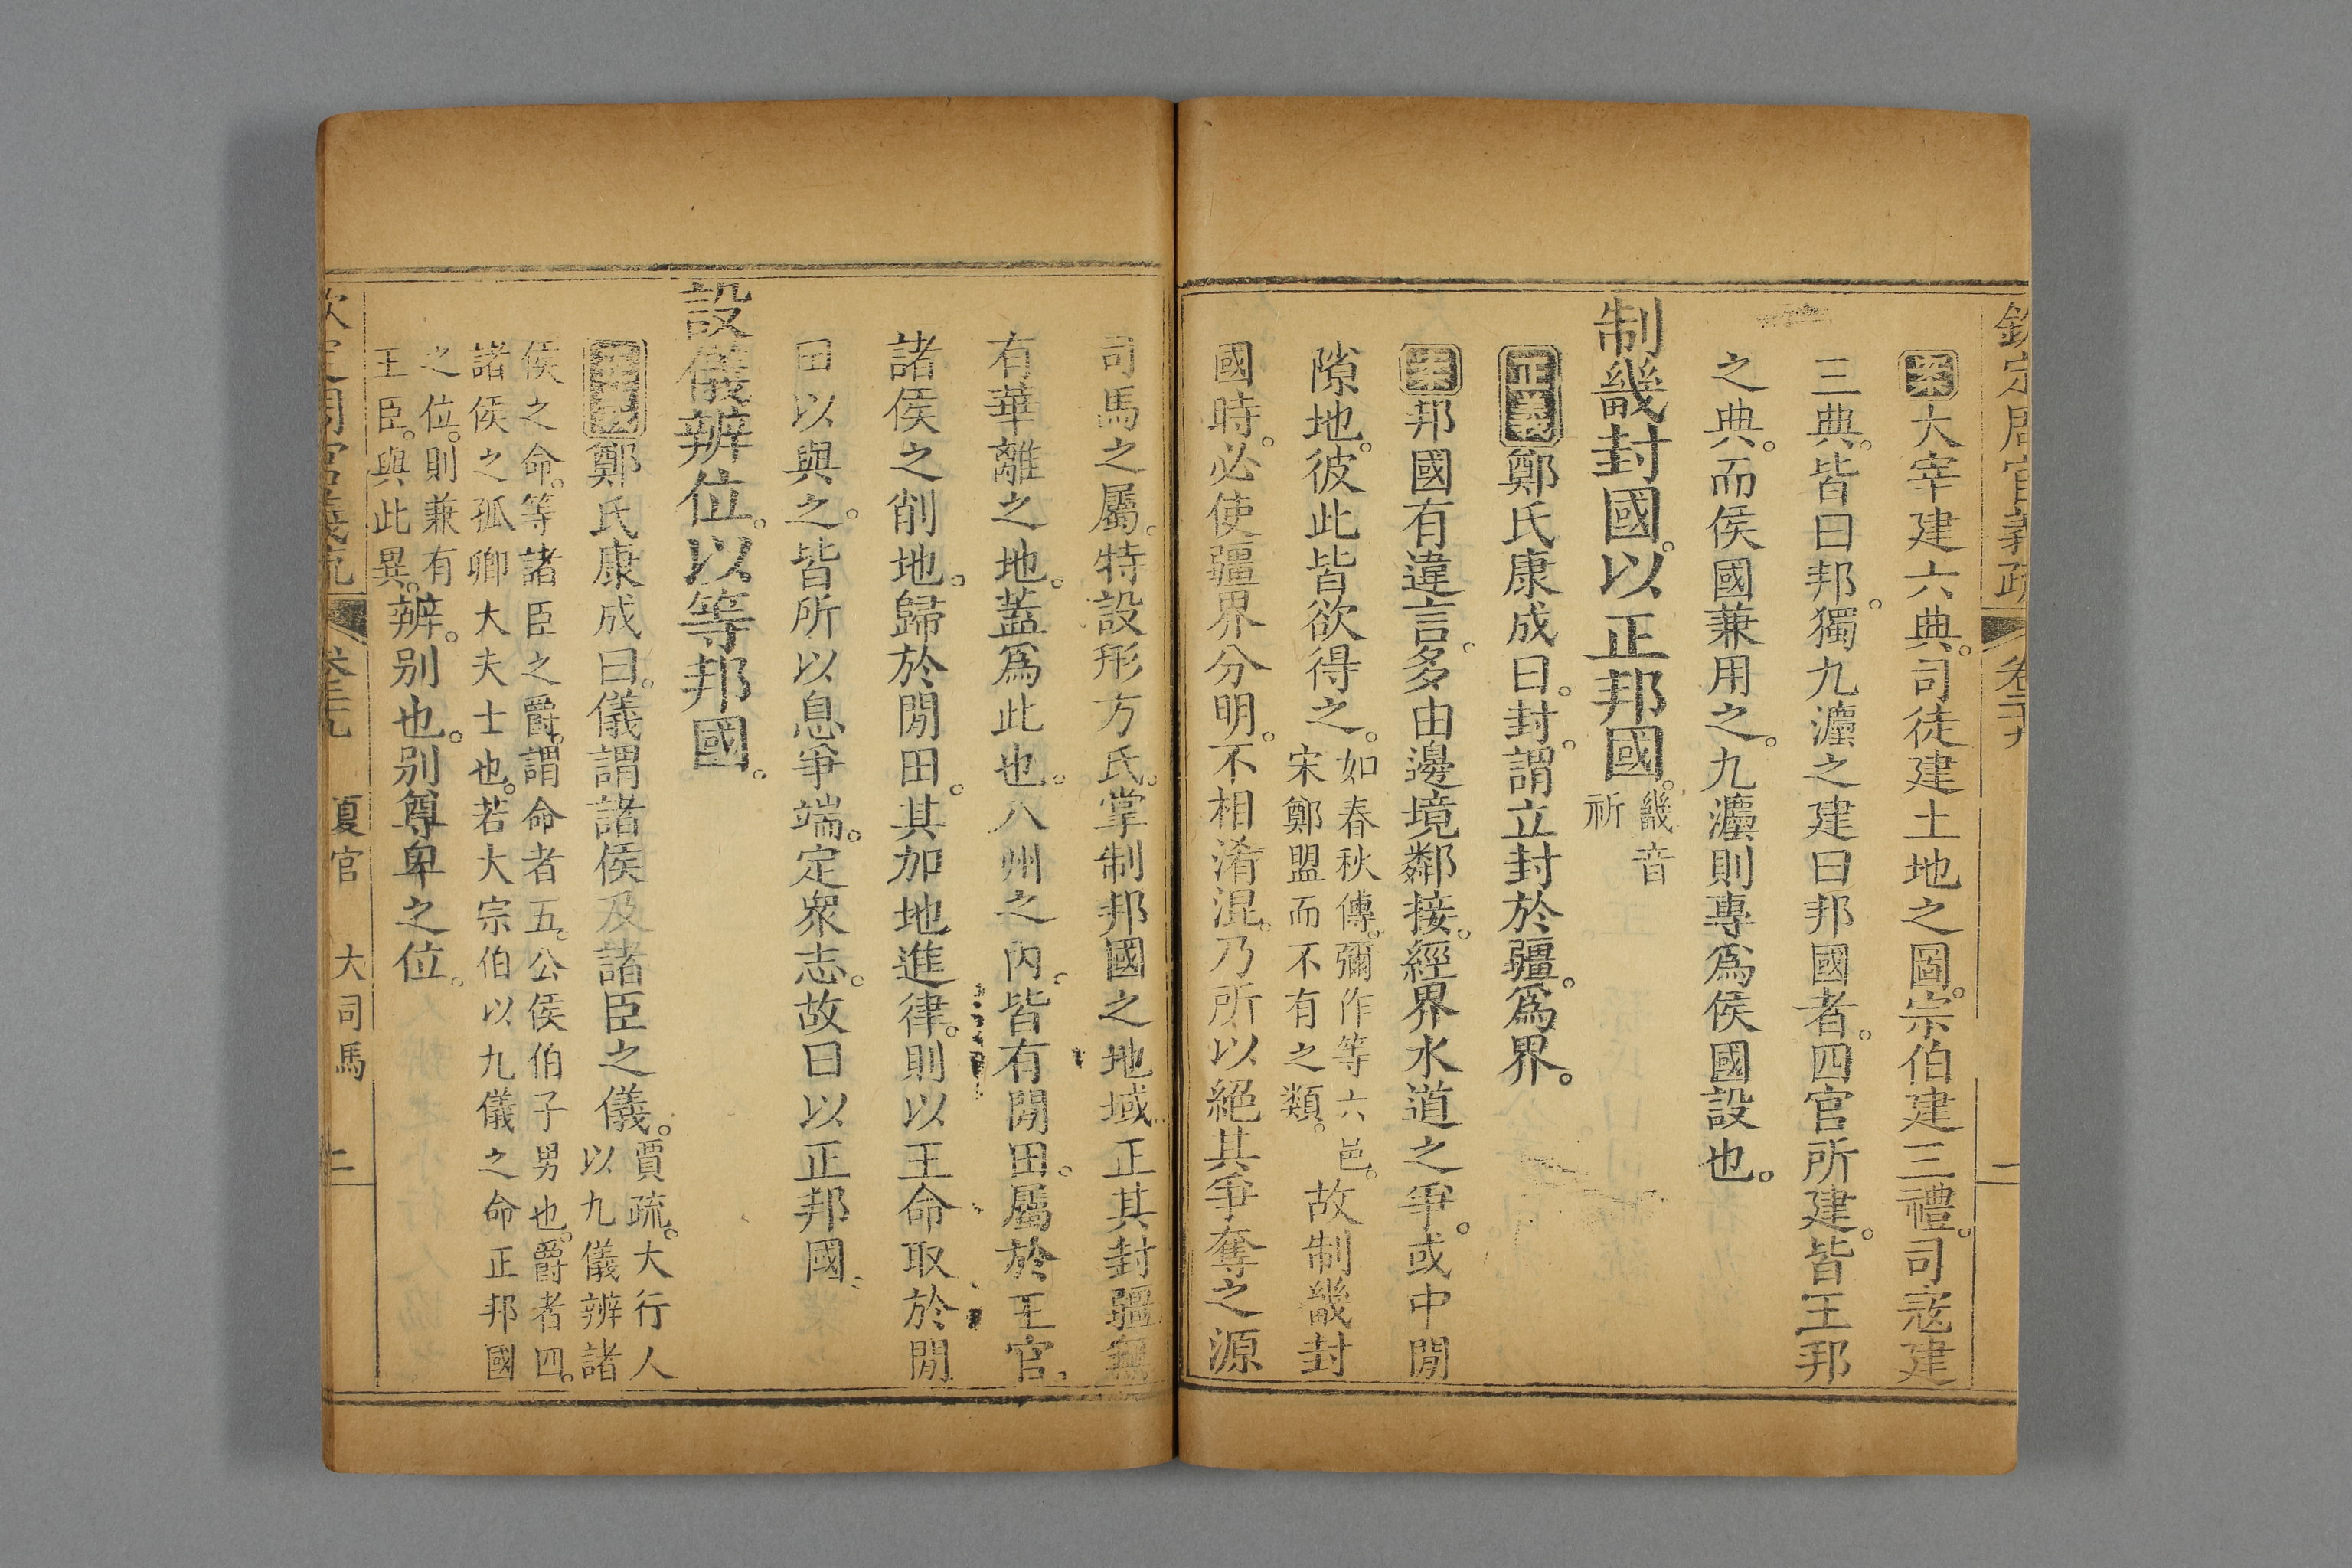 欽定周官義疏 卷二十九
案大宰建六典。司徒建土地之圖。宗伯建三禮。司寇建
三典。皆曰邦。獨九灋之建曰邦國者。四官所建。皆王邦
之典。而侯國兼用之。九灋則專爲侯國設也。
制畿封國。以正邦國。畿音祈
正義鄭氏康成曰。封。謂立封於疆。爲界。
案邦國有違言。多由邊境鄰接。經界水道之爭。或中閒
隙地。彼此皆欲得之。如春秋傳。彌作等六邑。宋鄭盟而不有之類。故制畿封
國時。必使疆界分明。不相淆混。乃所以絕其爭奪之源
司馬之屬。特設形方氏。掌制邦國之地域正其封疆無
有華離之地。葢爲此也。八州之內。皆有閒田。屬於王官。
諸侯之削地。歸於閒田。其加地進律。則以王命取於閒
田以與之。皆所以息爭端。定衆志。故曰以正邦國。
設儀辨位。以等邦國。
正義鄭氏康成曰。儀謂諸侯及諸臣之儀。賈疏。大行人以九儀辨諸
侯之命。等諸臣之爵。謂命者五。公侯伯子男也。爵者四。
諸侯之孤卿大夫士也。若大宗伯以九儀之命正邦國
之位。則兼有王臣。與此異。辨。别也。别尊卑之位。
欽定周官義疏 卷二十九 夏官 大司馬 二